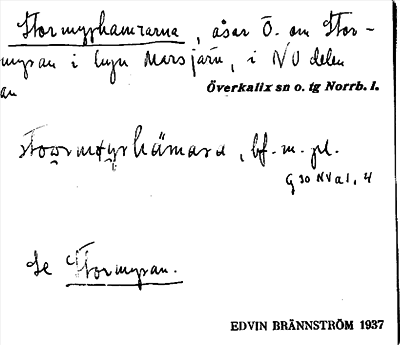 Stormyrhamrarna, åsar Ö. om Stor-
myran i byn Marsjärv, i NV delen
av
Överkalix sn o. tg Norrb. l.
bf. m. pl.
G 30 NV a 1, 4
Se Stormyran.
EDVIN BRÄNNSTRÖM 1937